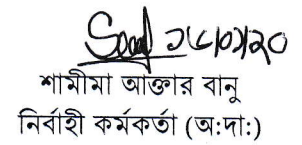 ১৮/০১/২০
শামীমা আক্তার বানু
নির্বাহী কর্মকর্তা (অ:দা:)